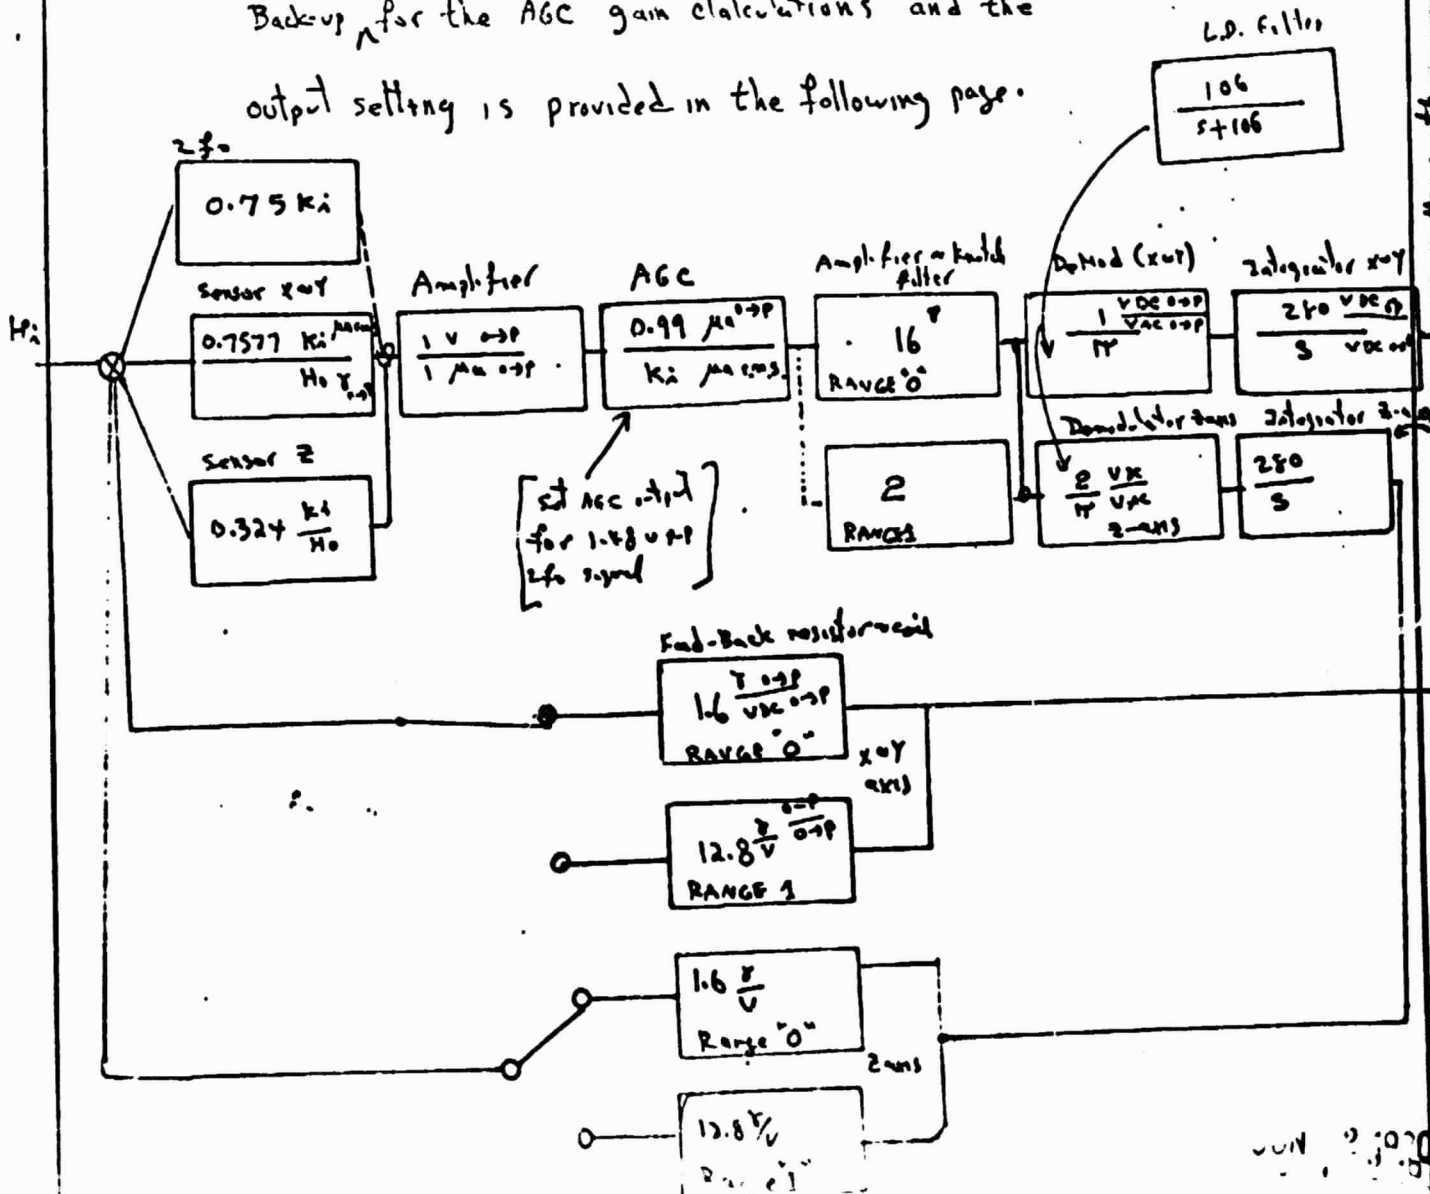 Back-up ^ for the AGC gain clalculations and the
output setting is provided in the following page.
L.D. Filter
106
s+106
2 fo
0.75 Ki
Sensor X or Y
0.7577 Ki
Ho γ
Sensor Z
0.324 Ki
Ho
Hi
Amplifier
1 V o→p
1 μa o→p
AGC
0.99 μa o→p
Ki μa r.m.s.
[set AGC output
for 1.48 v o→p
2fo signal]
Amplifier
filter
16
RANGE "0"
2
RANGE 1
DeMod (X or Y)
1 VDC o→p
π VAC o→p
Integrator X or Y
280 VDC
S VDC
Demodulator Z axis
2 VDC
π VAC
Z-axis
Integrator Z-axis
280
S
Feed-Back resistor coil
1.6 γ o→p
VDC o→p
RANGE "0"
X or Y
axis
12.8 γ o→p
V o→p
RANGE 1
1.6 γ
V
Range "0"
Z axis
12.8 γ/V
Range "1"